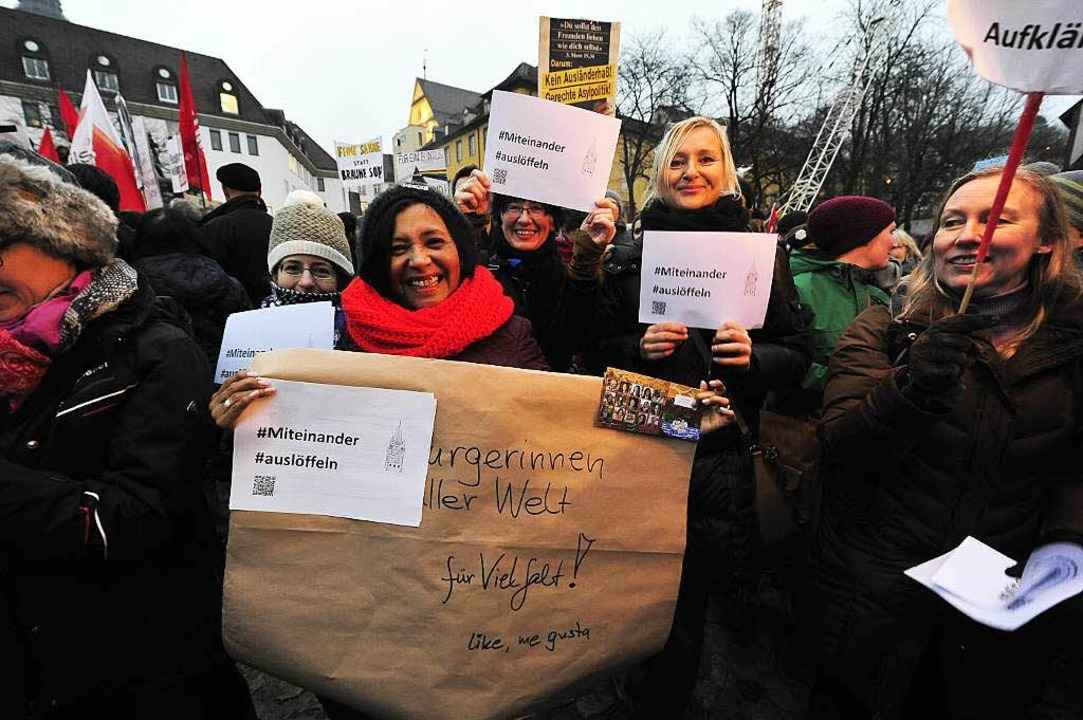 Aufklä
»Du sollst den
Fremden lieben
wie dich selbst«
3. Mose 19,34
Darum:
Kein Ausländerhaß!
Gerechte Asylpolitik!
#Miteinander
#auslöffeln
FEINE SAHNE
STATT
BRAUNE SOP
FÜR EINE
#Miteinander
#auslöffeln
#Miteinander
#auslöffeln
#Miteinander
#auslöffeln
urgerinnen
ller Welt
für Vielfalt!
like, me gusta